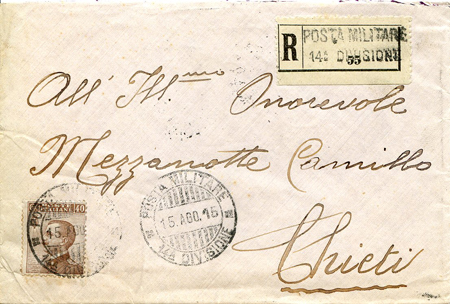 R
POSTA MILITARE
14ª DIVISIONE
55
All' Ill.mo Onorevole
Mezzanotte Camillo
Chieti
40
POSTA MILITARE
15.AGO.15
14ª DIVISIONE